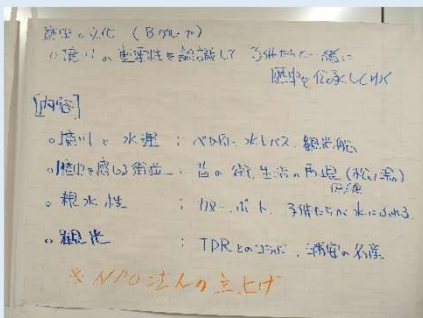 歴史と文化 (Bグループ)
○境川の重要性を認識して 子供たちと一緒に
歴史を伝承していく
[内容]
○境川と水運 : べか舟・水上バス 観光船
○歴史を感じる街並 : 昔の街、生活の再現
○親水性 : カヌー、ボート、子供たちが水にふれる
○観光 : TDRとのコラボ、浦安の名産
※NPO法人の立上げ